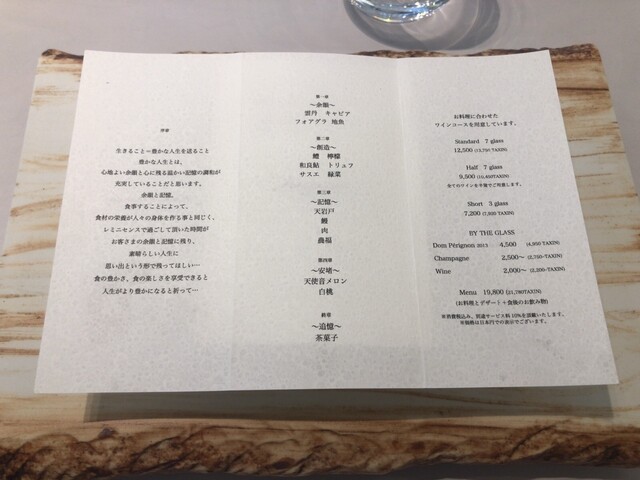 序章
生きること＝豊かな人生を送ること
豊かな人生とは、
心地よい余韻と心に残る温かい記憶の調和が
充実していることだと思います。
余韻と記憶。
食事することによって、
食材の栄養が人々の身体を作る事と同じく、
レミニセンスで過ごして頂いた時間が
お客さまの余韻と記憶に残り、
素晴らしい人生に
思い出という形で残ってほしい…
食の豊かさ、食の楽しさを享受できると
人生がより豊かになると祈って…
第一章
～余韻～
雲丹 キャビア
フォアグラ 地魚
第二章
～創造～
鱧 檸檬
和良鮎 トリュフ
サスエ 緑菜
第三章
～記憶～
天岩戸
鰻
肉
第四章
～安堵～
天使音メロン
白桃
終章
～追憶～
茶菓子
お料理に合わせた
ワインコースを用意しています。
Standard 7 glass
12,500 (13,750 TAXIN)
Half 7 glass
9,500 (10,450TAXIN)
全てのワインを半量でご用意します。
Short 3 glass
7,200 (7,920 TAXIN)
BY THE GLASS
Dom Pérignon 2013 4,500 (4,950 TAXIN)
Champagne 2,500～ (2,750-TAXIN)
Wine 2,000～ (2,200-TAXIN)
Menu 19,800 (21,780TAXIN)
(お料理とデザート＋食後のお飲み物)
※消費税込み、別途サービス料 10%を頂戴いたします。
※価格は日本円での表示でございます。